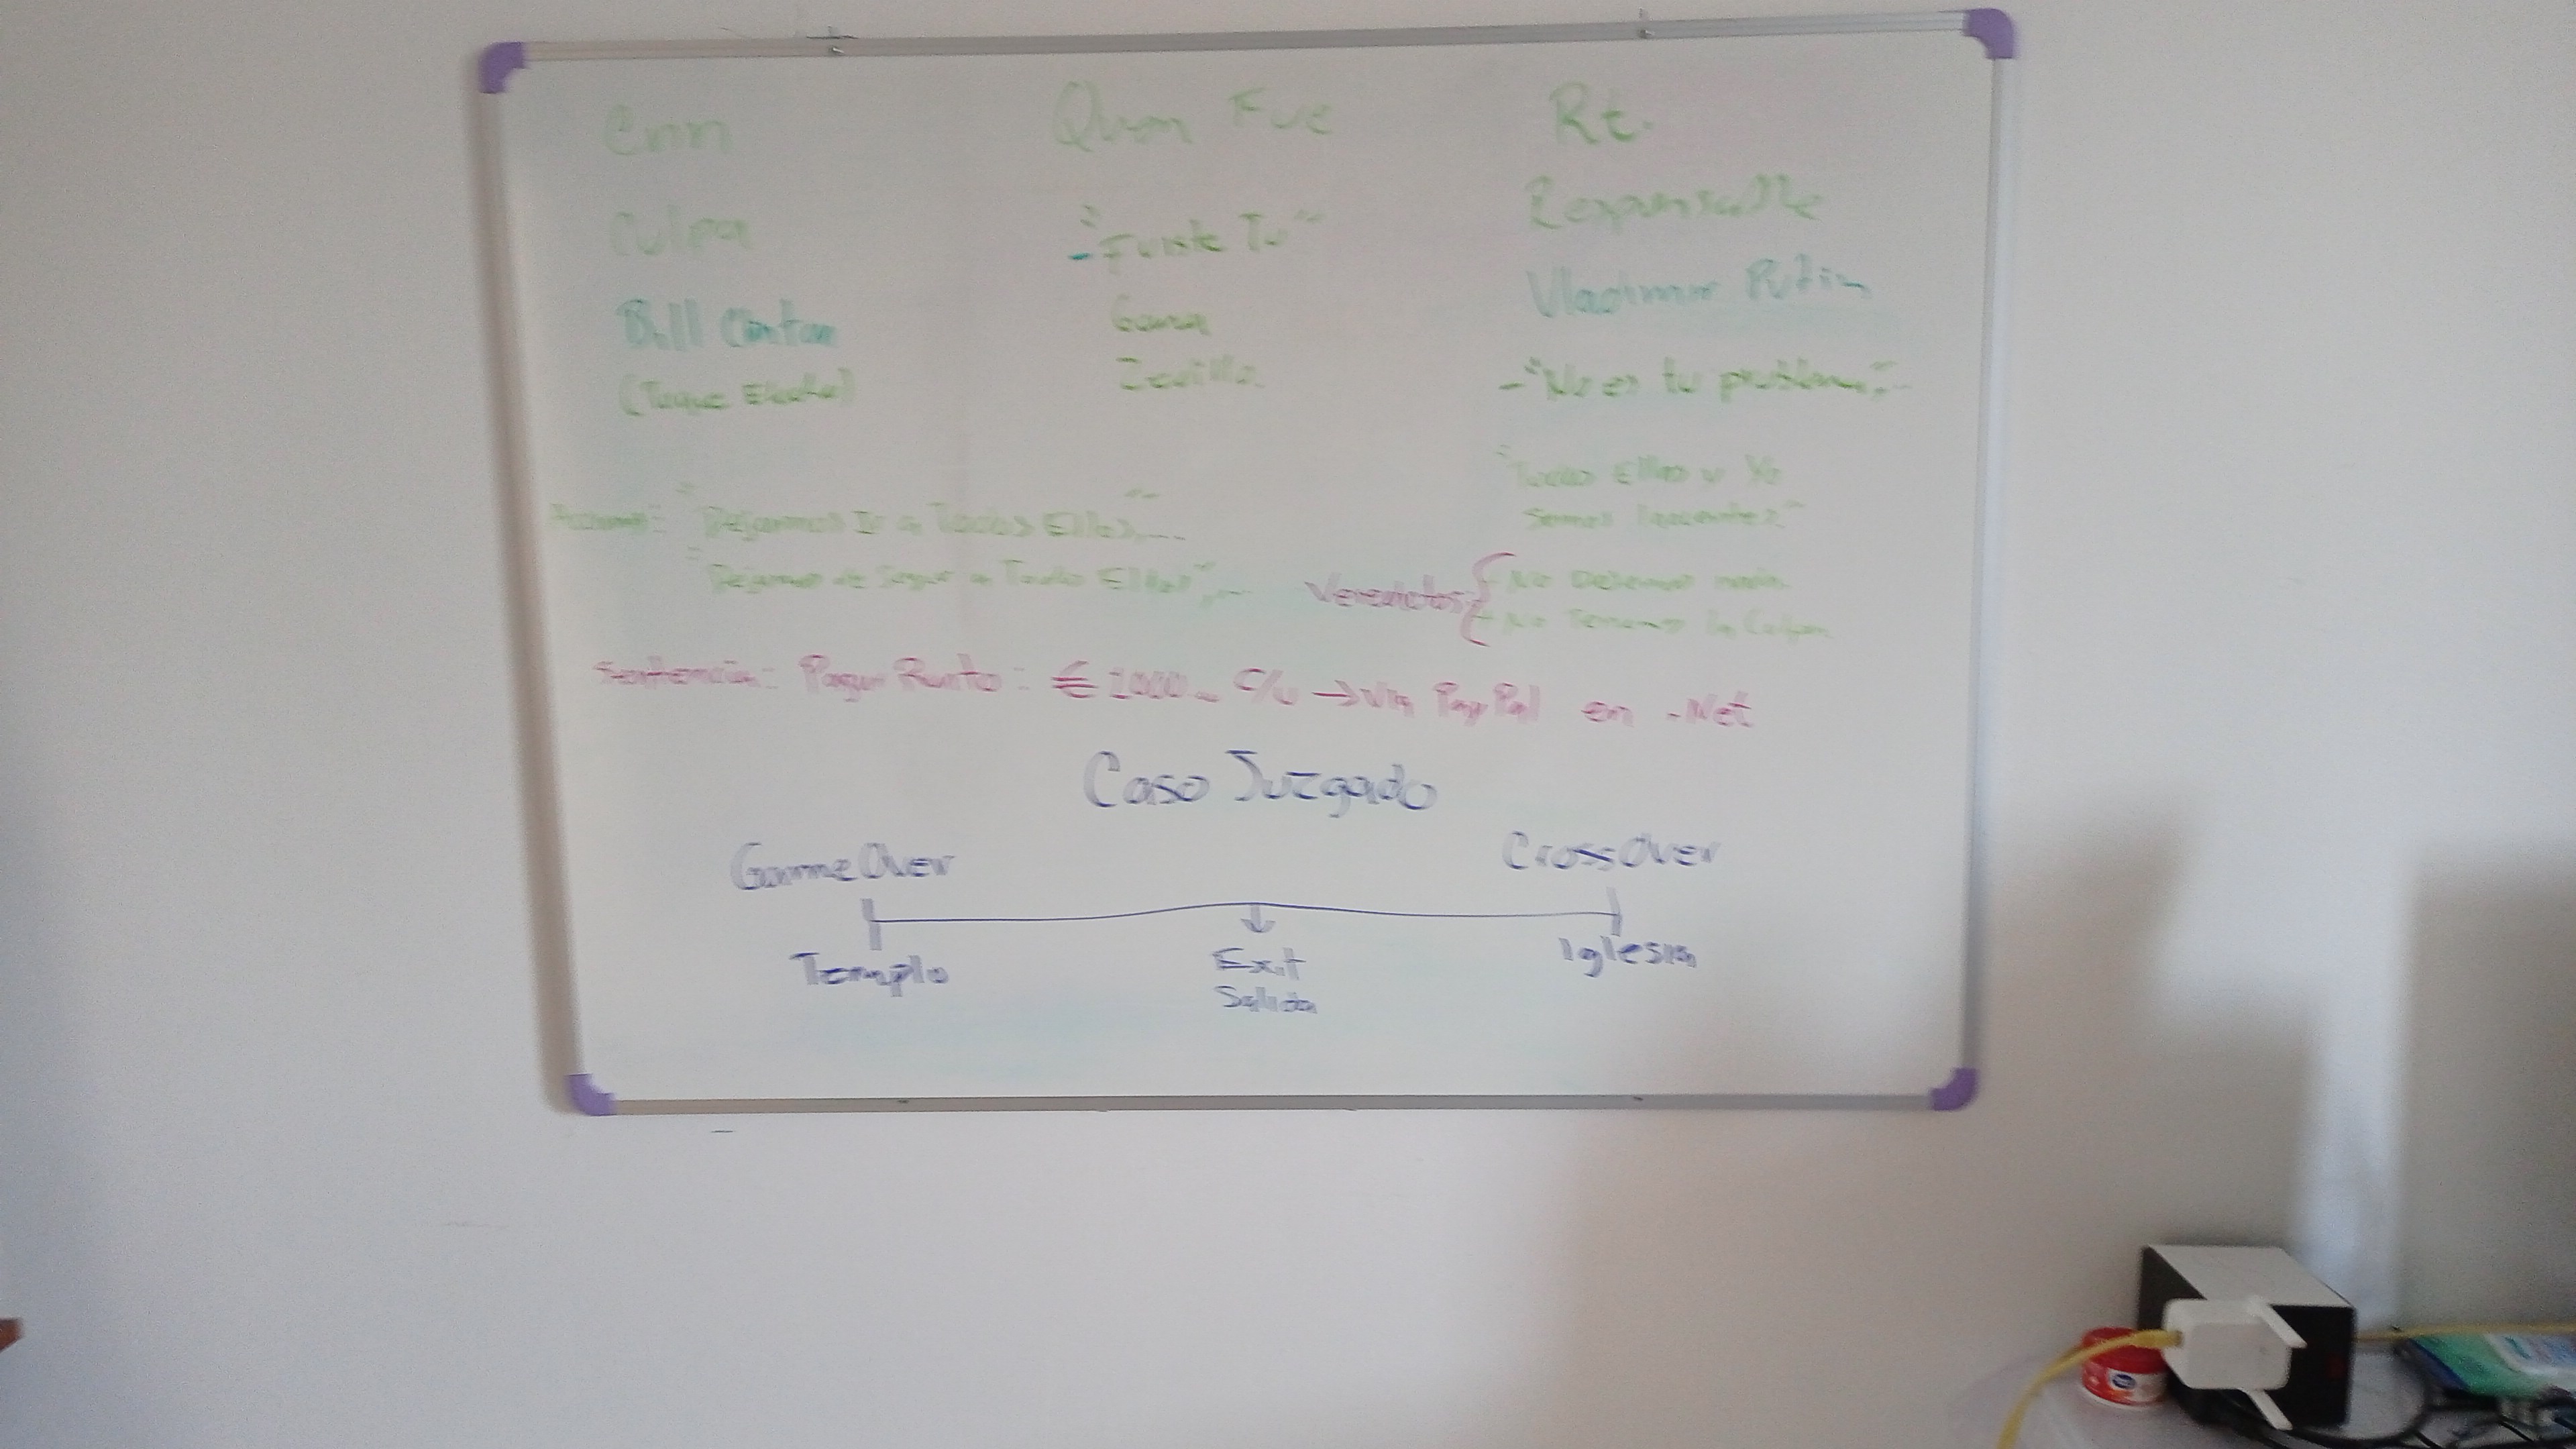 Cnn Quien Fue Rt.
Culpa "Fuiste Tu" Responsable
Bill Clinton Gana Vladimir Putin
(Toque Electo) Zevilla -"No es tu problema"...
"Todos Ellos y Yo
Somos Inocentes"
"Dejarnos Ir a Todos Ellos"...
"Dejarnos de Seguir a Todo Ellos",...
Veredictos { - No Debemos nada
- No Tenemos la Culpa
Sentencia: Pagar Punto: € 1000.- C/u → Via PayPal en -Net
Caso Juzgado
GameOver CrossOver
Templo Exit Iglesia
Salida